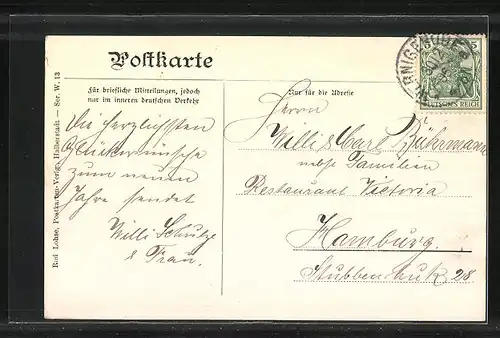 Postkarte
Für briefliche Mitteilungen, jedoch
nur im inneren deutschen Verkehr
Nur für die Adresse
Die herzlichsten
Glückwünsche
zum neuen
Jahre sendet
Willi Schulze
& Frau.
Herrn
Willi & Carl Bührmann
nebst Familien
Restaurant Victoria
Hamburg.
Stubbenhuk 28
DEUTSCHES REICH
5
WERNIGERODE
Rud. Lohse, Postkarten-Verlag, Halberstadt — Ser. W. 13